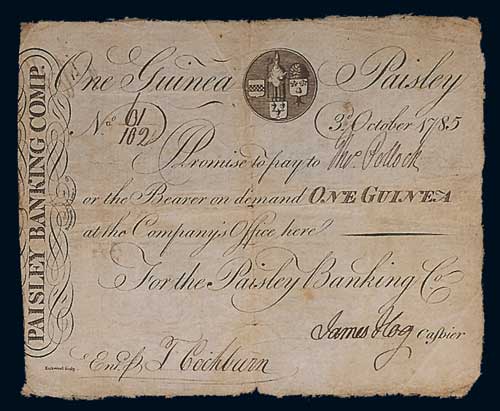 PAISLEY BANKING COMP.
One Guinea Paisley
No. 61/182 3d. October 1785
Promise to pay to Thos. Pollock
or the Bearer on demand ONE GUINEA
at the Company's Office here
For the Paisley Banking Co
James Hog Cashier
Entd. T Cochburn